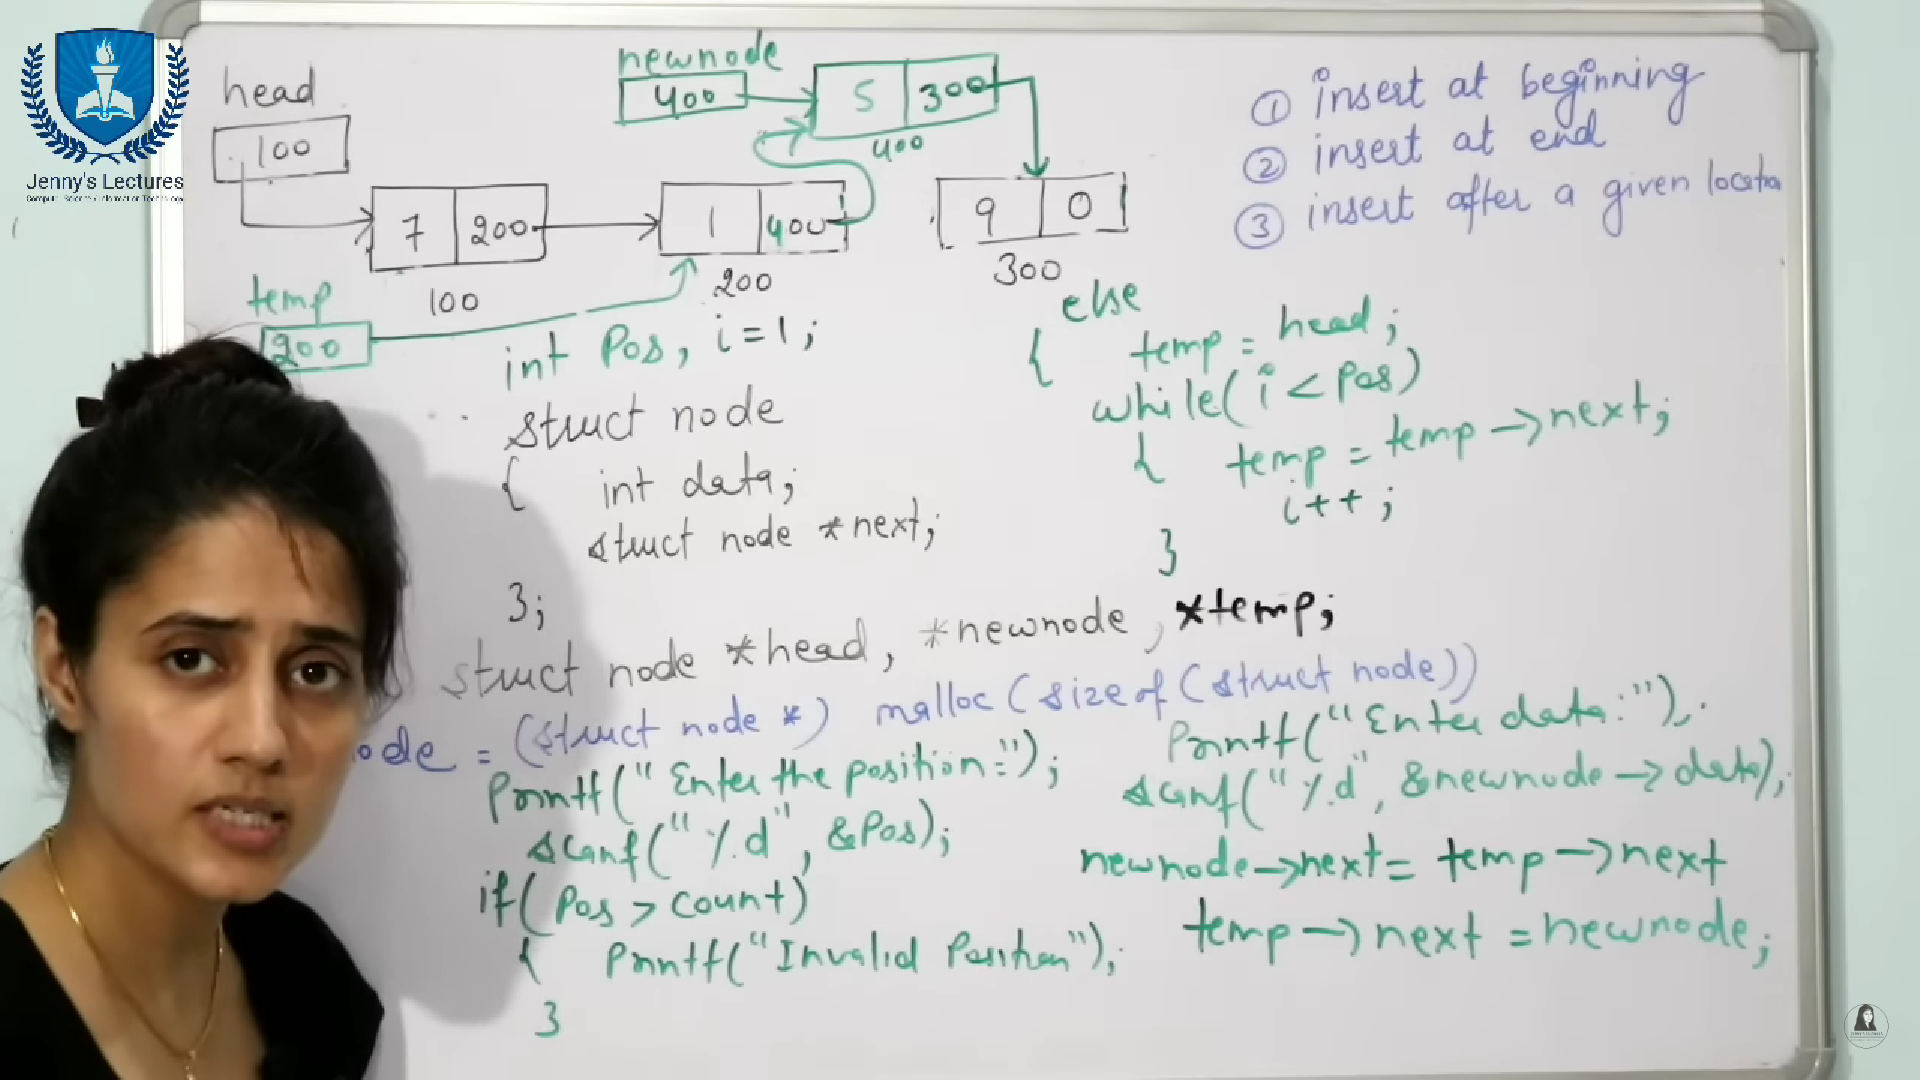 Jenny's Lectures
Computer Science & Information Technology
head
100
newnode
400
5 300
400
7 200
100
1 400
200
9 0
300
temp
200
① insert at beginning
② insert at end
③ insert after a given locatio
int Pos, i=1;
struct node
{ int data;
struct node *next;
};
struct node *head, *newnode, *temp;
ode = (struct node *) malloc(sizeof(struct node))
Printf("Enter the position:");
scanf("%d", &Pos);
if( Pos > count)
{ Printf("Invalid Position");
}
else
{ temp = head;
while( i < Pos)
{ temp = temp->next;
i++;
}
Printf("Enter data:");
scanf("%d", &newnode->data);
newnode->next = temp->next
temp->next = newnode;